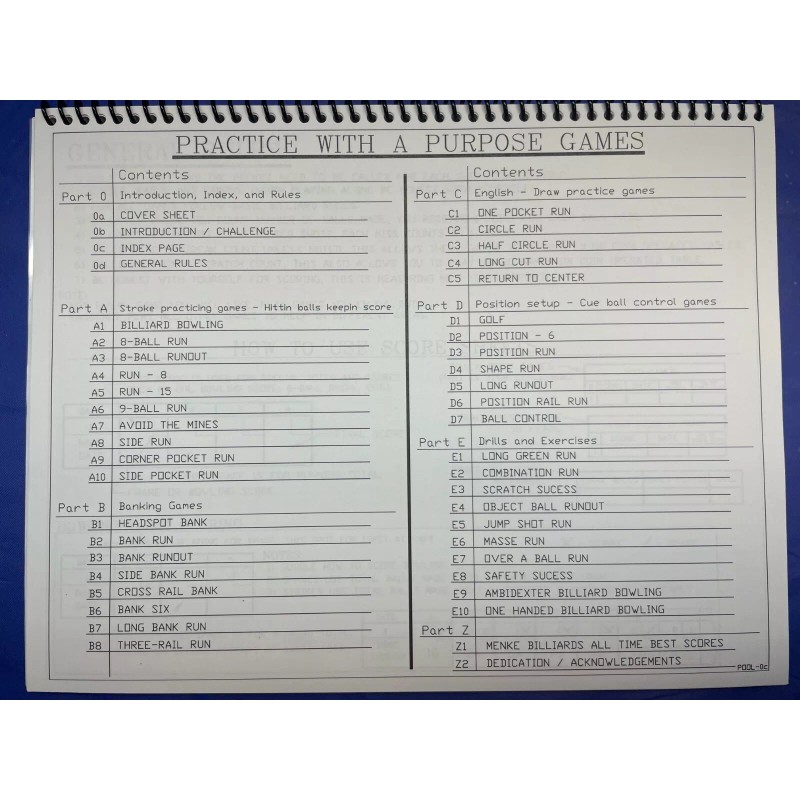 PRACTICE WITH A PURPOSE GAMES
Contents
Part 0 Introduction, Index, and Rules
0a COVER SHEET
0b INTRODUCTION / CHALLENGE
0c INDEX PAGE
0d GENERAL RULES
Part A Stroke practicing games - Hittin balls keepin score
A1 BILLIARD BOWLING
A2 8-BALL RUN
A3 8-BALL RUNOUT
A4 RUN - 8
A5 RUN - 15
A6 9-BALL RUN
A7 AVOID THE MINES
A8 SIDE RUN
A9 CORNER POCKET RUN
A10 SIDE POCKET RUN
Part B Banking Games
B1 HEADSPOT BANK
B2 BANK RUN
B3 BANK RUNOUT
B4 SIDE BANK RUN
B5 CROSS RAIL BANK
B6 BANK SIX
B7 LONG BANK RUN
B8 THREE-RAIL RUN
Contents
Part C English - Draw practice games
C1 ONE POCKET RUN
C2 CIRCLE RUN
C3 HALF CIRCLE RUN
C4 LONG CUT RUN
C5 RETURN TO CENTER
Part D Position setup - Cue ball control games
D1 GOLF
D2 POSITION - 6
D3 POSITION RUN
D4 SHAPE RUN
D5 LONG RUNOUT
D6 POSITION RAIL RUN
D7 BALL CONTROL
Part E Drills and Exercises
E1 LONG GREEN RUN
E2 COMBINATION RUN
E3 SCRATCH SUCESS
E4 OBJECT BALL RUNOUT
E5 JUMP SHOT RUN
E6 MASSE RUN
E7 OVER A BALL RUN
E8 SAFETY SUCESS
E9 AMBIDEXTER BILLIARD BOWLING
E10 ONE HANDED BILLIARD BOWLING
Part Z
Z1 MENKE BILLIARDS ALL TIME BEST SCORES
Z2 DEDICATION / ACKNOWLEDGEMENTS
POOL-0c